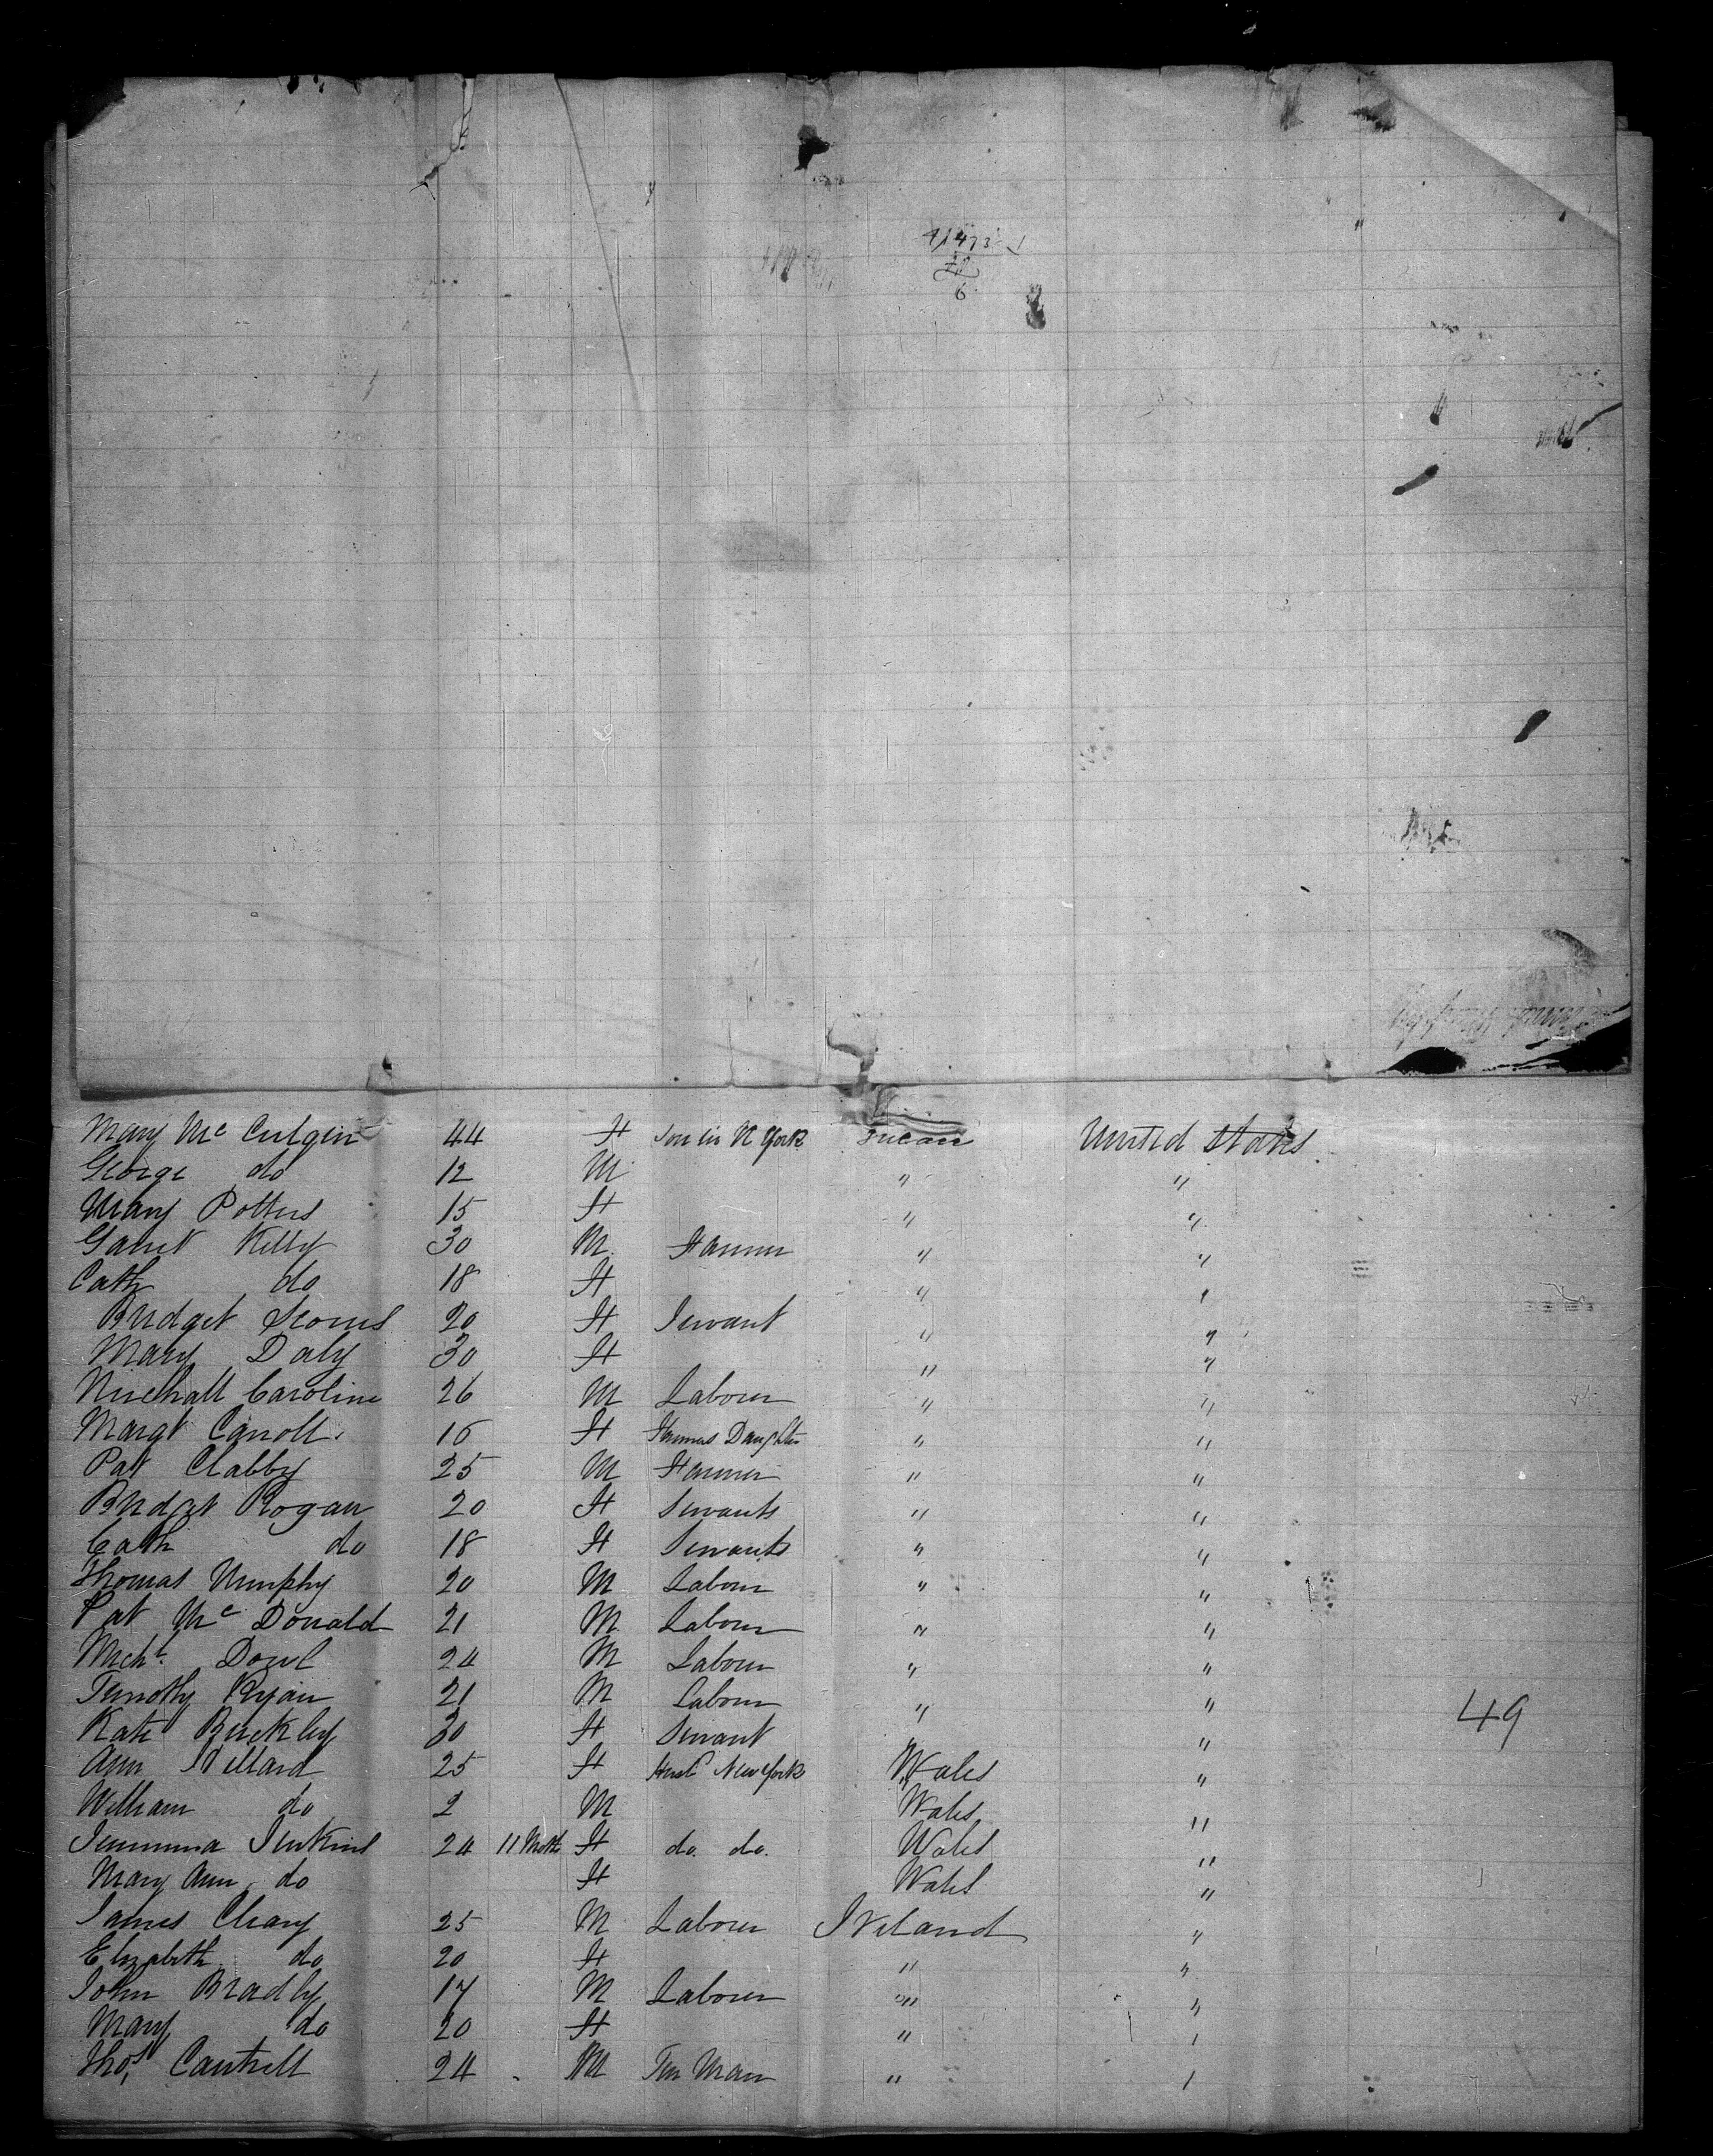 Mary Mc Culgin 44 F Son in N York United States
George do 12 M " "
Mary Potters 15 F " "
Garret Kelly 30 M Farmer " "
Cath do 18 F " "
Bridget 20 F Servant " "
Mary Daly 30 F " "
Caroline 26 M Labourer " "
Margt Carroll 16 F Farmers Daughter " "
Pat Clabby 25 M Farmer " "
Bridget Rogan 20 F Servants " "
Cath do 18 F Servants " "
Thomas Murphy 20 M Labour " "
Pat Mc Donald 21 M Labour " "
Michl. Dowl 24 M Labour " "
Timothy Ryan 21 M Labour " " 49
Kate Buckley 30 F Servant "
Ann 25 F Husd New York Wales "
William do 2 M Wales "
Jemmima Jenkins 24 11 Moths F do. do. Wales "
Mary Ann do F Wales "
James Cleary 25 M Labourer Ireland "
Elizabeth do 20 F " "
John Bradly 17 M Labourer " "
Mary do 20 F "
Thos. Cantrell 24 M Tin Man "